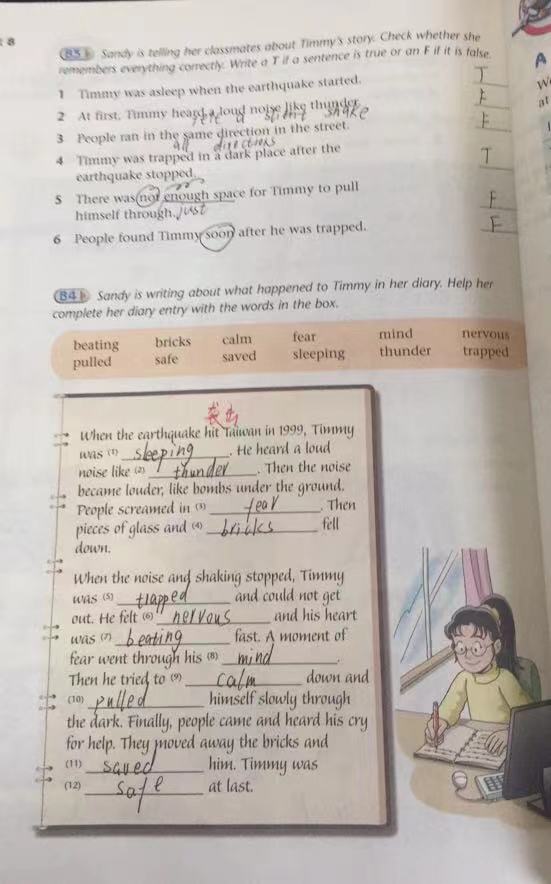 8
B3 Sandy is telling her classmates about Timmy's story. Check whether she
remembers everything correctly. Write a T if a sentence is true or an F if it is false.
A
1 Timmy was asleep when the earthquake started. T
2 At first, Timmy heard a loud noise like thunder. F
felt a slight shake
3 People ran in the same direction in the street. F
all directions
4 Timmy was trapped in a dark place after the
earthquake stopped. T
5 There was not enough space for Timmy to pull
himself through. just F
6 People found Timmy soon after he was trapped. F
B4 Sandy is writing about what happened to Timmy in her diary. Help her
complete her diary entry with the words in the box.
beating bricks calm fear mind nervous
pulled safe saved sleeping thunder trapped
袭击
When the earthquake hit Taiwan in 1999, Timmy
was (1) sleeping. He heard a loud
noise like (2) thunder. Then the noise
became louder, like bombs under the ground.
People screamed in (3) fear. Then
pieces of glass and (4) bricks fell
down.
When the noise and shaking stopped, Timmy
was (5) trapped and could not get
out. He felt (6) nervous and his heart
was (7) beating fast. A moment of
fear went through his (8) mind.
Then he tried to (9) calm down and
(10) pulled himself slowly through
the dark. Finally, people came and heard his cry
for help. They moved away the bricks and
(11) saved him. Timmy was
(12) safe at last.